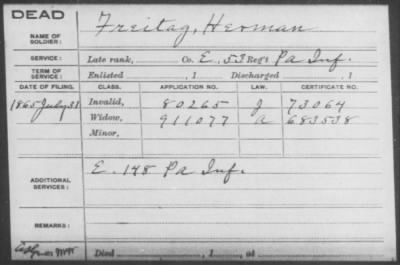 DEAD
NAME OF SOLDIER: Freitag, Herman
SERVICE: Late rank, Co. E, 53 Reg't Pa Inf.
TERM OF SERVICE: Enlisted , 1 Discharged , 1
DATE OF FILING. CLASS. APPLICATION NO. LAW. CERTIFICATE NO.
1865 July 31 Invalid, 80265 J 73064
Widow, 911077 A 683538
Minor,
ADDITIONAL SERVICES: E. 148 Pa Inf.
REMARKS:
Died , 1 , at